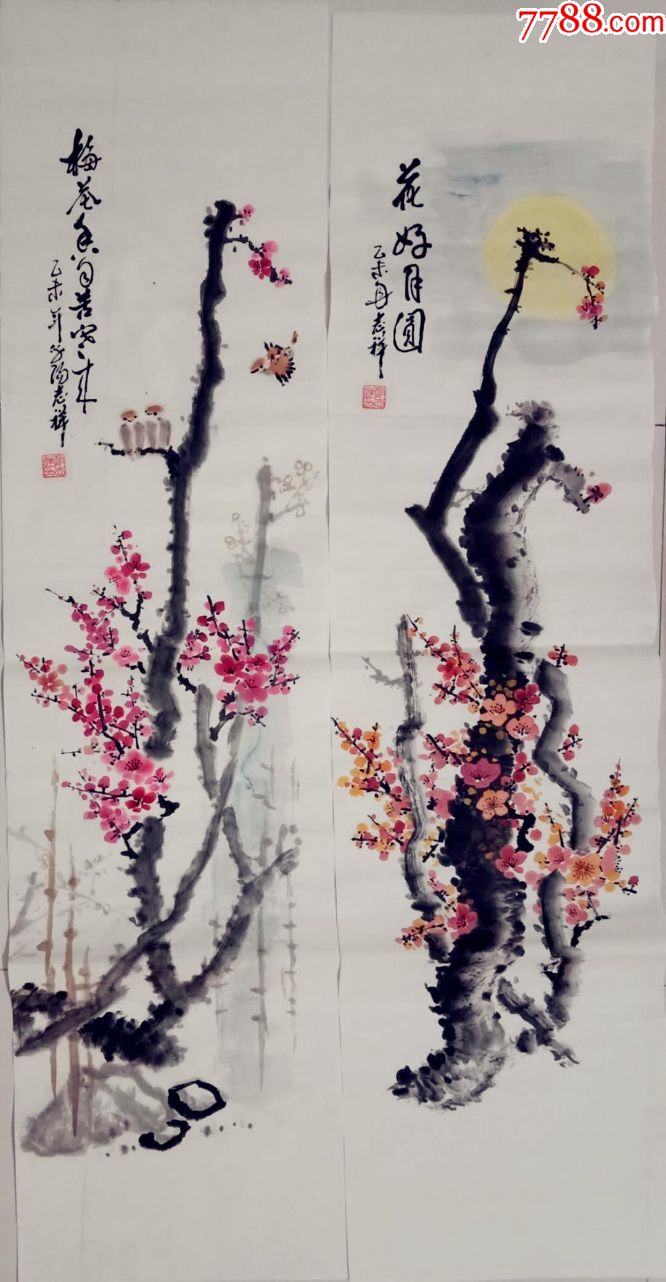 7788.com
梅花香自苦寒来
花好月圆
乙未年
志祥
乙未
志祥